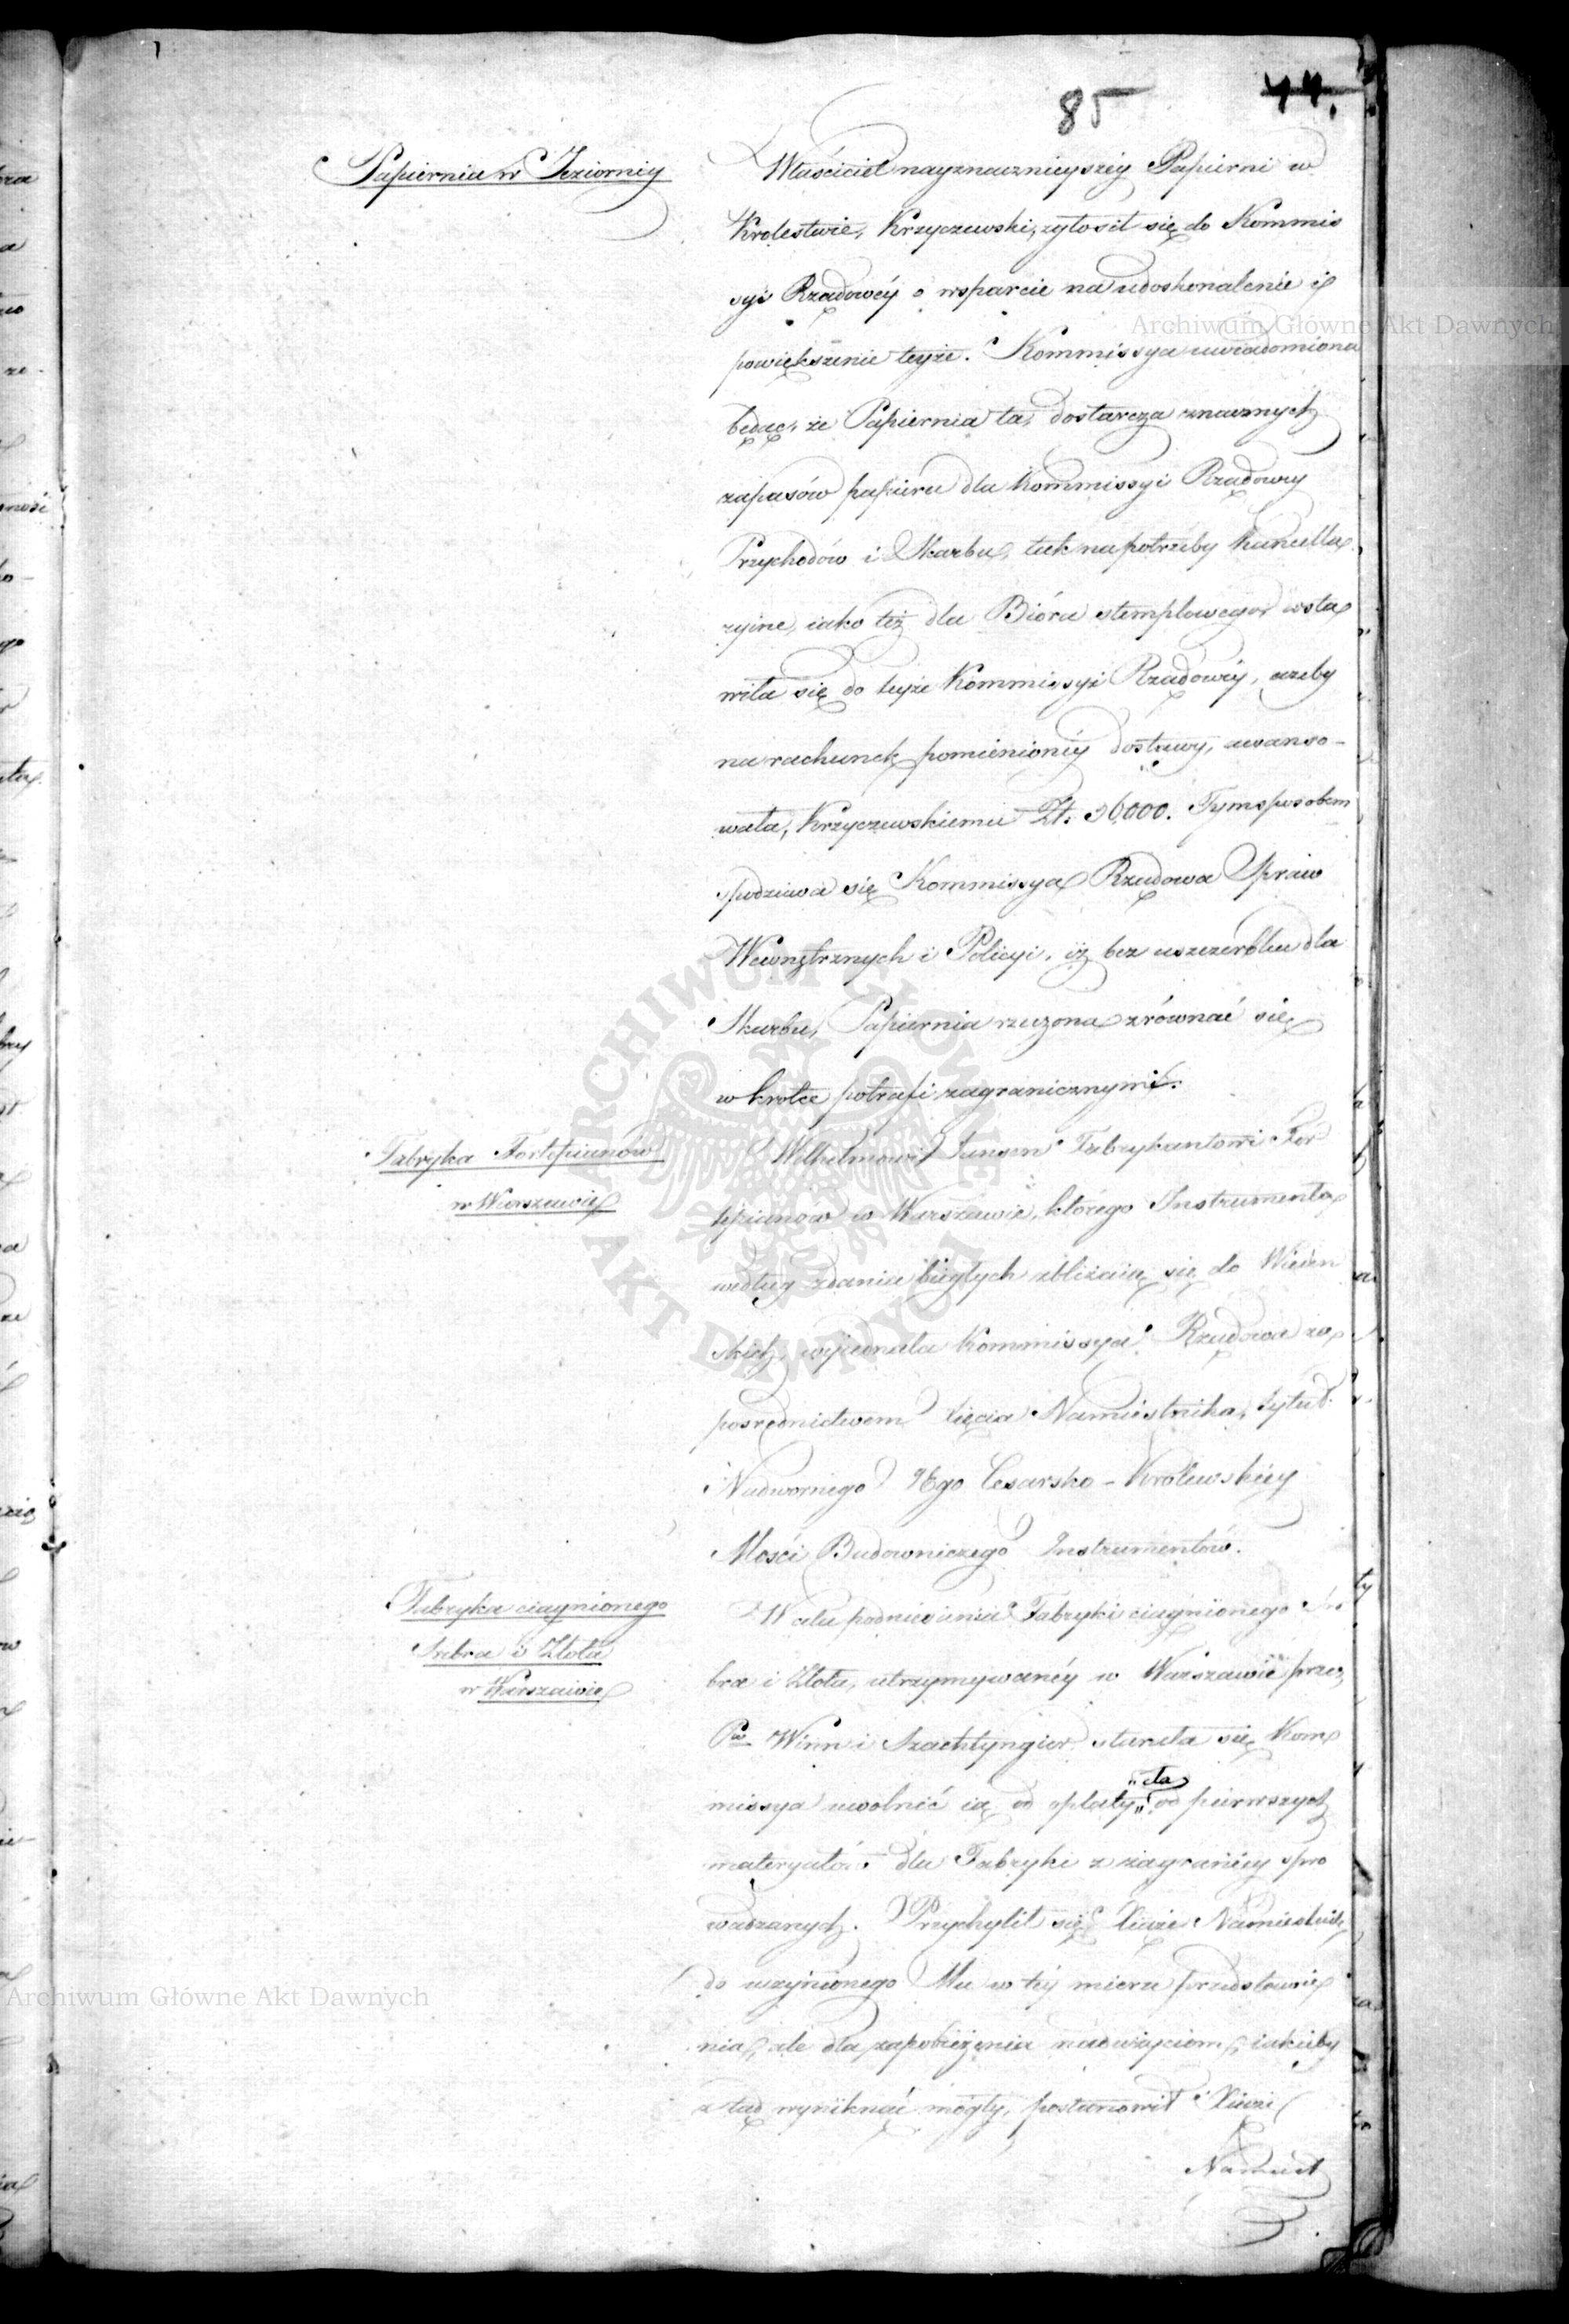 85
44.
Papiernia w Jeziorniey
Właściciel nayznacznieyszéy Papierni w
Krolestwie, Krzyczewski, zgłosił się do Kommis
syi Rządowéy o wsparcie na udoskonalenie i
powiększenie teyże. Kommissya uwiadomiona
będąc, że Papiernia ta, dostarcza znacznych
zapasów papieru dla Kommissyi Rządowéy
Przychodów i Skarbu, tak na potrzeby Kancella
ryine, iako też dla Bióra stemplowego, wsta
wiła się do teyże Kommissyi Rządowéy, ażeby
na rachunek pomienionéy dostawy, awanso-
wała, Krzyczewskiemu Zł. 36000. Tym sposobem
spodziewa się Kommissya Rządowa Spraw
Wewnętrznych i Policyi, iż bez uszczerbku dla
Skarbu, Papiernia rzeczona zrównać się
wkrotce potrafi zagranicznymi.
Fabryka Fortepianów
w Warszawie
Wilhelmowi Jansen Fabrykantowi For
tepianow w Warszawie, którego Instrumenta
według zdania biegłych zbliżaią się do Wieden
skich, wyiednała Kommissya Rządowa za
posrednictwem Xięcia Namiestnika, tytuł
Nadwornego JEgo Cesarsko-Krolewskiéy
Mosci Budowniczego Instrumentów.
Fabryka ciągnionego
Srebra i Złota
w Warszawie
W celu podniesienia Fabryki ciągnionego Sre
bra i Złota, utrzymywanéy w Warszawie przez
PP. Winn i Szachtyngier starała się Kom
missya uwolnić ią od opłaty „cła„ od pierwszych
materyałów dla Fabryki z zagranicy spro
wadzanych. Przychylił się Xiąże Namiestnik
do uczynionego Mu w téy mierze przedstawie
nia, ale dla zapobieżenia nadużyciom, iakieby
z tąd wyniknąć mogły, postanowił Xiąże
Namiest
Archiwum Główne Akt Dawnych
Archiwum Główne Akt Dawnych
ARCHIWUM GŁÓWNE
AKT DAWNYCH